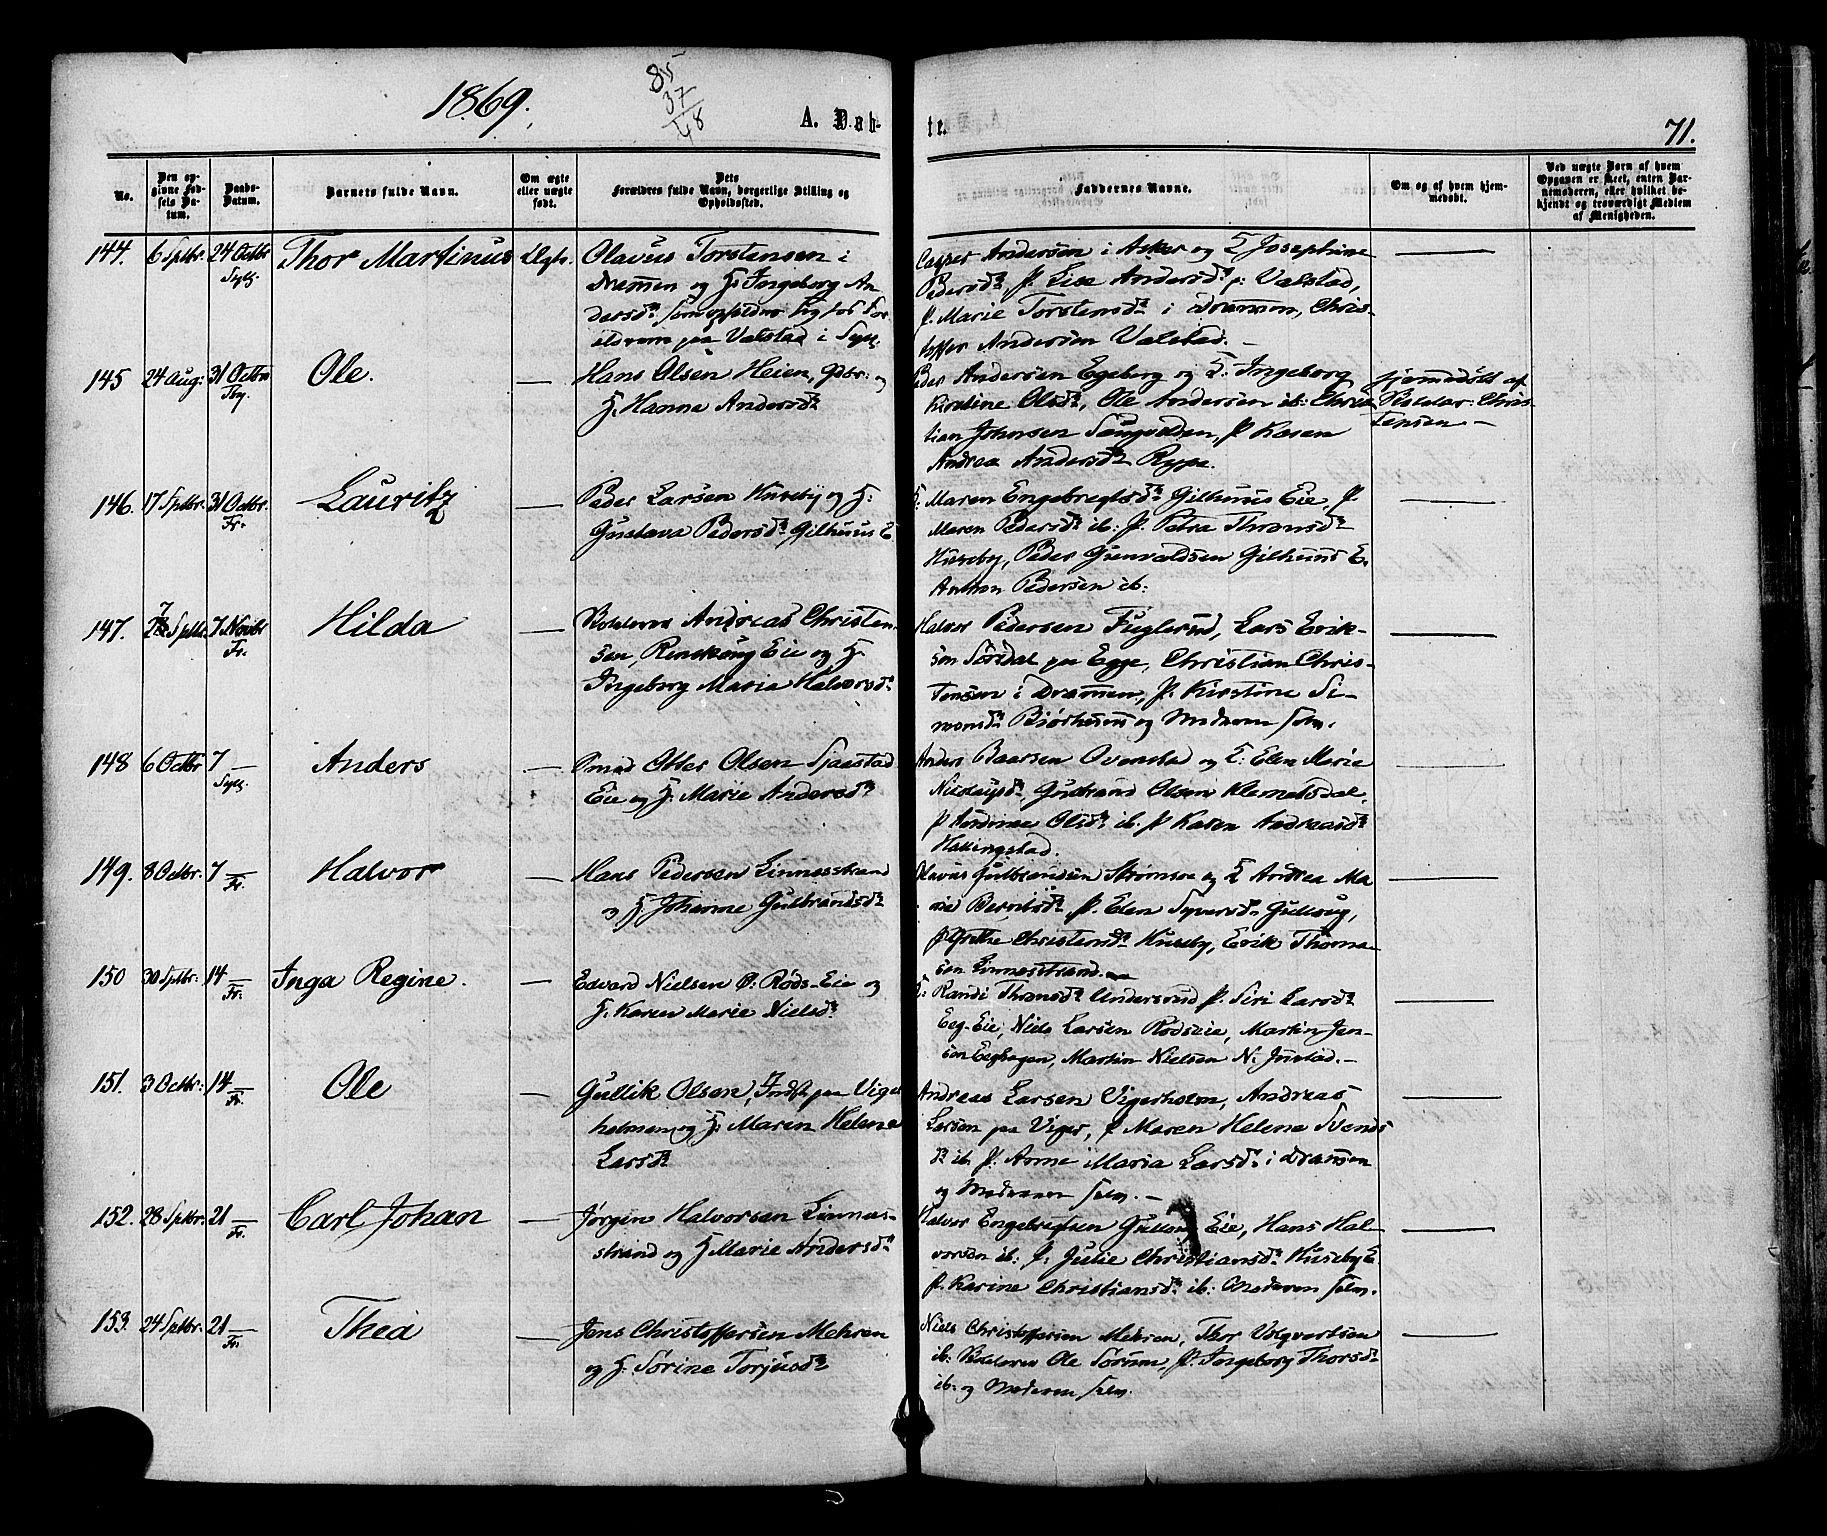 1869.
85
37
48
A. Døb-
te.
71.
No.
Den op-
givne Fød-
sels Da-
tum.
Daabs-
Datum.
Barnets fulde Navn.
Om ægte
eller uægte
født.
Dets
Forældres fulde Navn, borgerlige Stilling og
Opholdssted.
Faddernes Navne.
Om og af hvem hjem-
medøbt.
Ved uægte Barn af hvem
Opgaven er skeet, enten Bar-
nemoderen, eller hvilket be-
kjendt og troværdigt Medlem
af Menigheden.
144. 6 Sptbr. 24 Octbr Sylg. Thor Martinus Ægte.
Olavus Torstensen i
Drammen og H. Ingeborg An-
dersdr. som opholder sig hos For-
ældrene paa Valstad i Syll.
Casper Andersen i Asker og H Josephine
Pedersdr, P. Lise Andersdr p: Valstad,
P. Marie Torstensdr i Drammen, Chris-
toffer Andersen Valstad. —
145 24 Aug: 31 Octbr Ole. —
Hans Olsen Heien, Gbr: og
H. Hanna Andersdr
Peder Andersen Egeberg og H. Ingeborg
Kirstine Olsdr, Ole Andersen ib: Chris-
tian Johnsen P. Karen
Andrea Andersdr Rype.
hjemmedøbt af
Chris-
tensen —
146. 17 Sptbr. 31 Octbr. Fr. Lauritz —
Peder Larsen Huseby og H:
Gustava Pedersdr Gilhuus E
H: Maren Engebregtsdr Gilhuus Eie, P
Maren Pedersdr ib: P. Petra Thronsdr
Huseby, Peder Gunvaldsen Gilhuus E.
Anton Pedersen ib:
147. 7 Sptbr. 7 Novbr Fr. Hilda —
Andreas Christen-
sen, Eie og H.
Ingeborg Maria Halvorsdr
Halvor Pedersen Fuglerud, Lars Erik-
sen Sørsdal paa Egge, Christian Chris-
tensen i Drammen, P. Kirstine Si-
monsdr Bjørhuus og Moderen selv.
148 6 Octbr 7 — Sylg. Anders —
Smed Olsen Sjaastad
Eie og H. Marie Andersdr
Anders Baarsen Ovenstad og H: Elen Marie
Nicolaysdr, Gulbrand Olsen Klemetsdal,
P Olsdr ib. P Karen Andreasdr
Hallingstad.
149. 8 Octbr. 7 — Fr. Halvor —
Hans Pedersen Linnesstrand
og H Johanne Gulbrandsdr
Olavus Gulbrandsen Strømsoe og H Andrea Ma-
rie Berntsdr P. Elen Syversdr Gullaug,
P Grethe Christensdr Huseby, Erik Thoma-
sen Linnesstrand. —
150 30 Sptbr: 14 — Fr. Inga Regine. —
Edvard Nielsen Ø: Røds-Eie og
H. Karen Marie Nielsdr
H: Randi Thronsdr Undersrud P. Siri Larsdr
Eeg-Eie, Niels Larsen Rødseie, Martin Jen-
sen Eeghagen, Martin Nielsen N: Justad. —
151. 3 Octbr: 14 — Fr. Ole —
Gullik Olsen, Indst paa Viger-
holmen og H. Maren Helene
Larsdr
Andreas Larsen Vigerholm, Andreas
Larsen paa Viger, P Maren Helene Svends
dr ib. P. Anne Maria Larsdr i Drammen
og Moderen selv. —
152. 28 Sptbr: 21 — Fr. Carl Johan —
Jørgen Halvorsen Linnes-
strand og H Marie Andersdr
Halvor Engebregtsen Gullaug Eie, Hans Hal-
vorsen ib: P. Julie Christiansdr Huseby E
P. Karine Christiansdr ib: Moderen selv.
153. 24 Sptbr. 21 — Fr. Thea —
Jens Christoffersen Mehren
og H. Sørine Torjusdr
Niels Christoffersen Mehren, Thor Volqvartsen
ib: Ole Sørum, P. Ingeborg Thorsdr
ib. og Moderen selv.